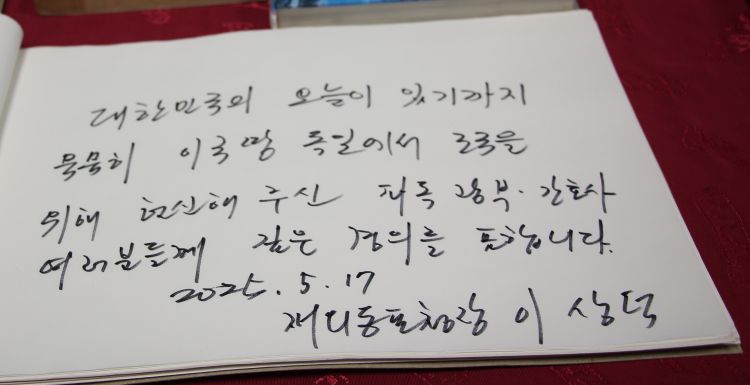 대한민국의 오늘이 있기까지
묵묵히 이국땅 독일에서 조국을
위해 헌신해 주신 파독 광부·간호사
여러분들께 깊은 경의를 표합니다.
2025. 5. 17
재외동포청장 이상덕